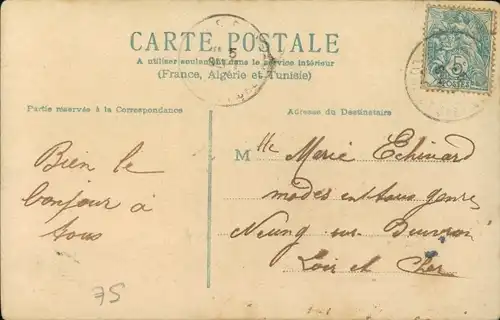 CARTE POSTALE
A utiliser seulement dans le service intérieur
(France, Algérie et Tunisie)
Partie réservée à la Correspondance
Adresse du Destinataire
Bien le
bonjour à
tous
75
Mlle Marie Echinard
modes en tous genres
Neung sur Beuvron
Loir et Cher
5
5